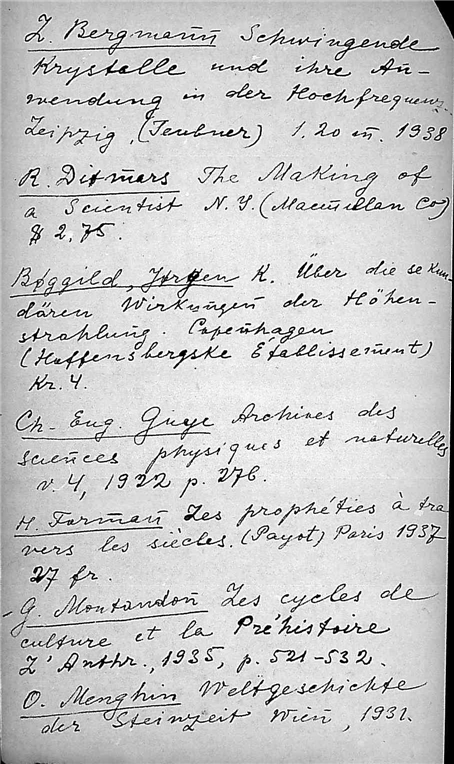 L. Bergmann Schwingende
Krystalle und ihre An-
wendung in der Hochfrequenz.
Leipzig, (Teubner) 1.20 m. 1938
R. Ditmars The Making of
a Scientist N.Y. (Macmillan Co)
$ 2,75.
Bøggild, Jørgen K. Über die sekun-
dären Wirkungen der Höhen-
strahlung. Copenhagen
(Hoffensbergske Établissement)
Kr. 4.
Ch- Eug. Guye Archives des
sciences physiques et naturelles
v. 4, 1922 p. 276.
H. Forman Les prophéties à tra
vers les siècles. (Payot) Paris 1937
27 fr.
G. Montandon Les cycles de
culture et la Préhistoire
L'Anthr., 1935, p. 521-532.
O. Menghin Weltgeschichte
der Steinzeit Wien, 1931.